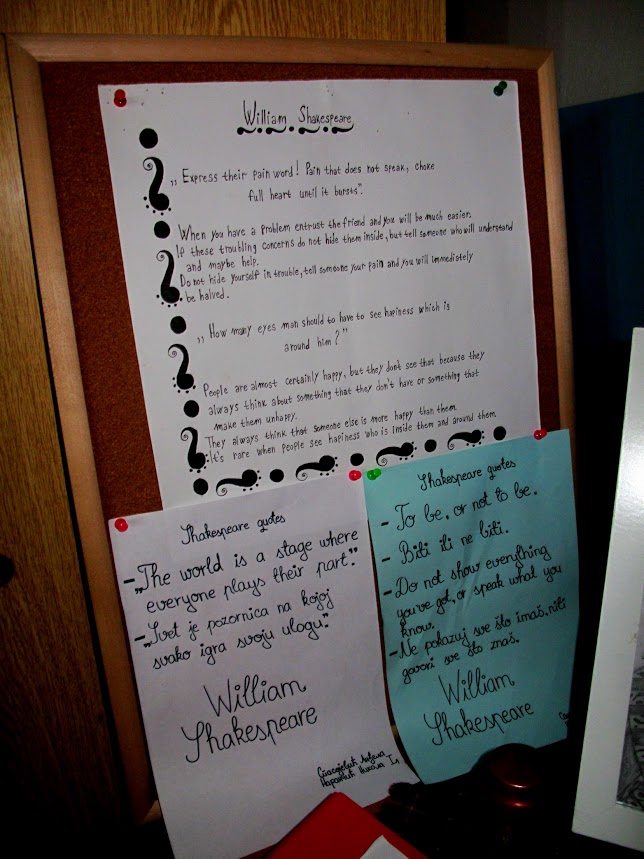 William Shakespeare
„ Express their pain word! Pain that does not speak, choke
full heart until it bursts".
When you have a problem entrust the friend and you will be much easier.
If these troubling concerns do not hide them inside, but tell someone who will understand
and maybe help.
Do not hide yourself in trouble, tell someone your pain and you will immediately
be halved.
„ How many eyes man should to have to see hapiness which is
around him?"
People are almost certainly happy, but they don't see that because they
always think about something that they don't have or something that
make them unhappy.
They always think that someone else is more happy than them.
It's rare when people see hapiness who is inside them and around them.
Shakespeare quotes
- „The world is a stage where
everyone plays their part."
- „Svet je pozornica na kojoj
svako igra svoju ulogu."
William
Shakespeare
Shakespeare quotes
- To be, or not to be.
- Biti ili ne biti.
- Do not show everything
you've got, or speak what you
know.
- Ne pokazuj sve što imaš, niti
govori sve što znaš.
William
Shakespeare